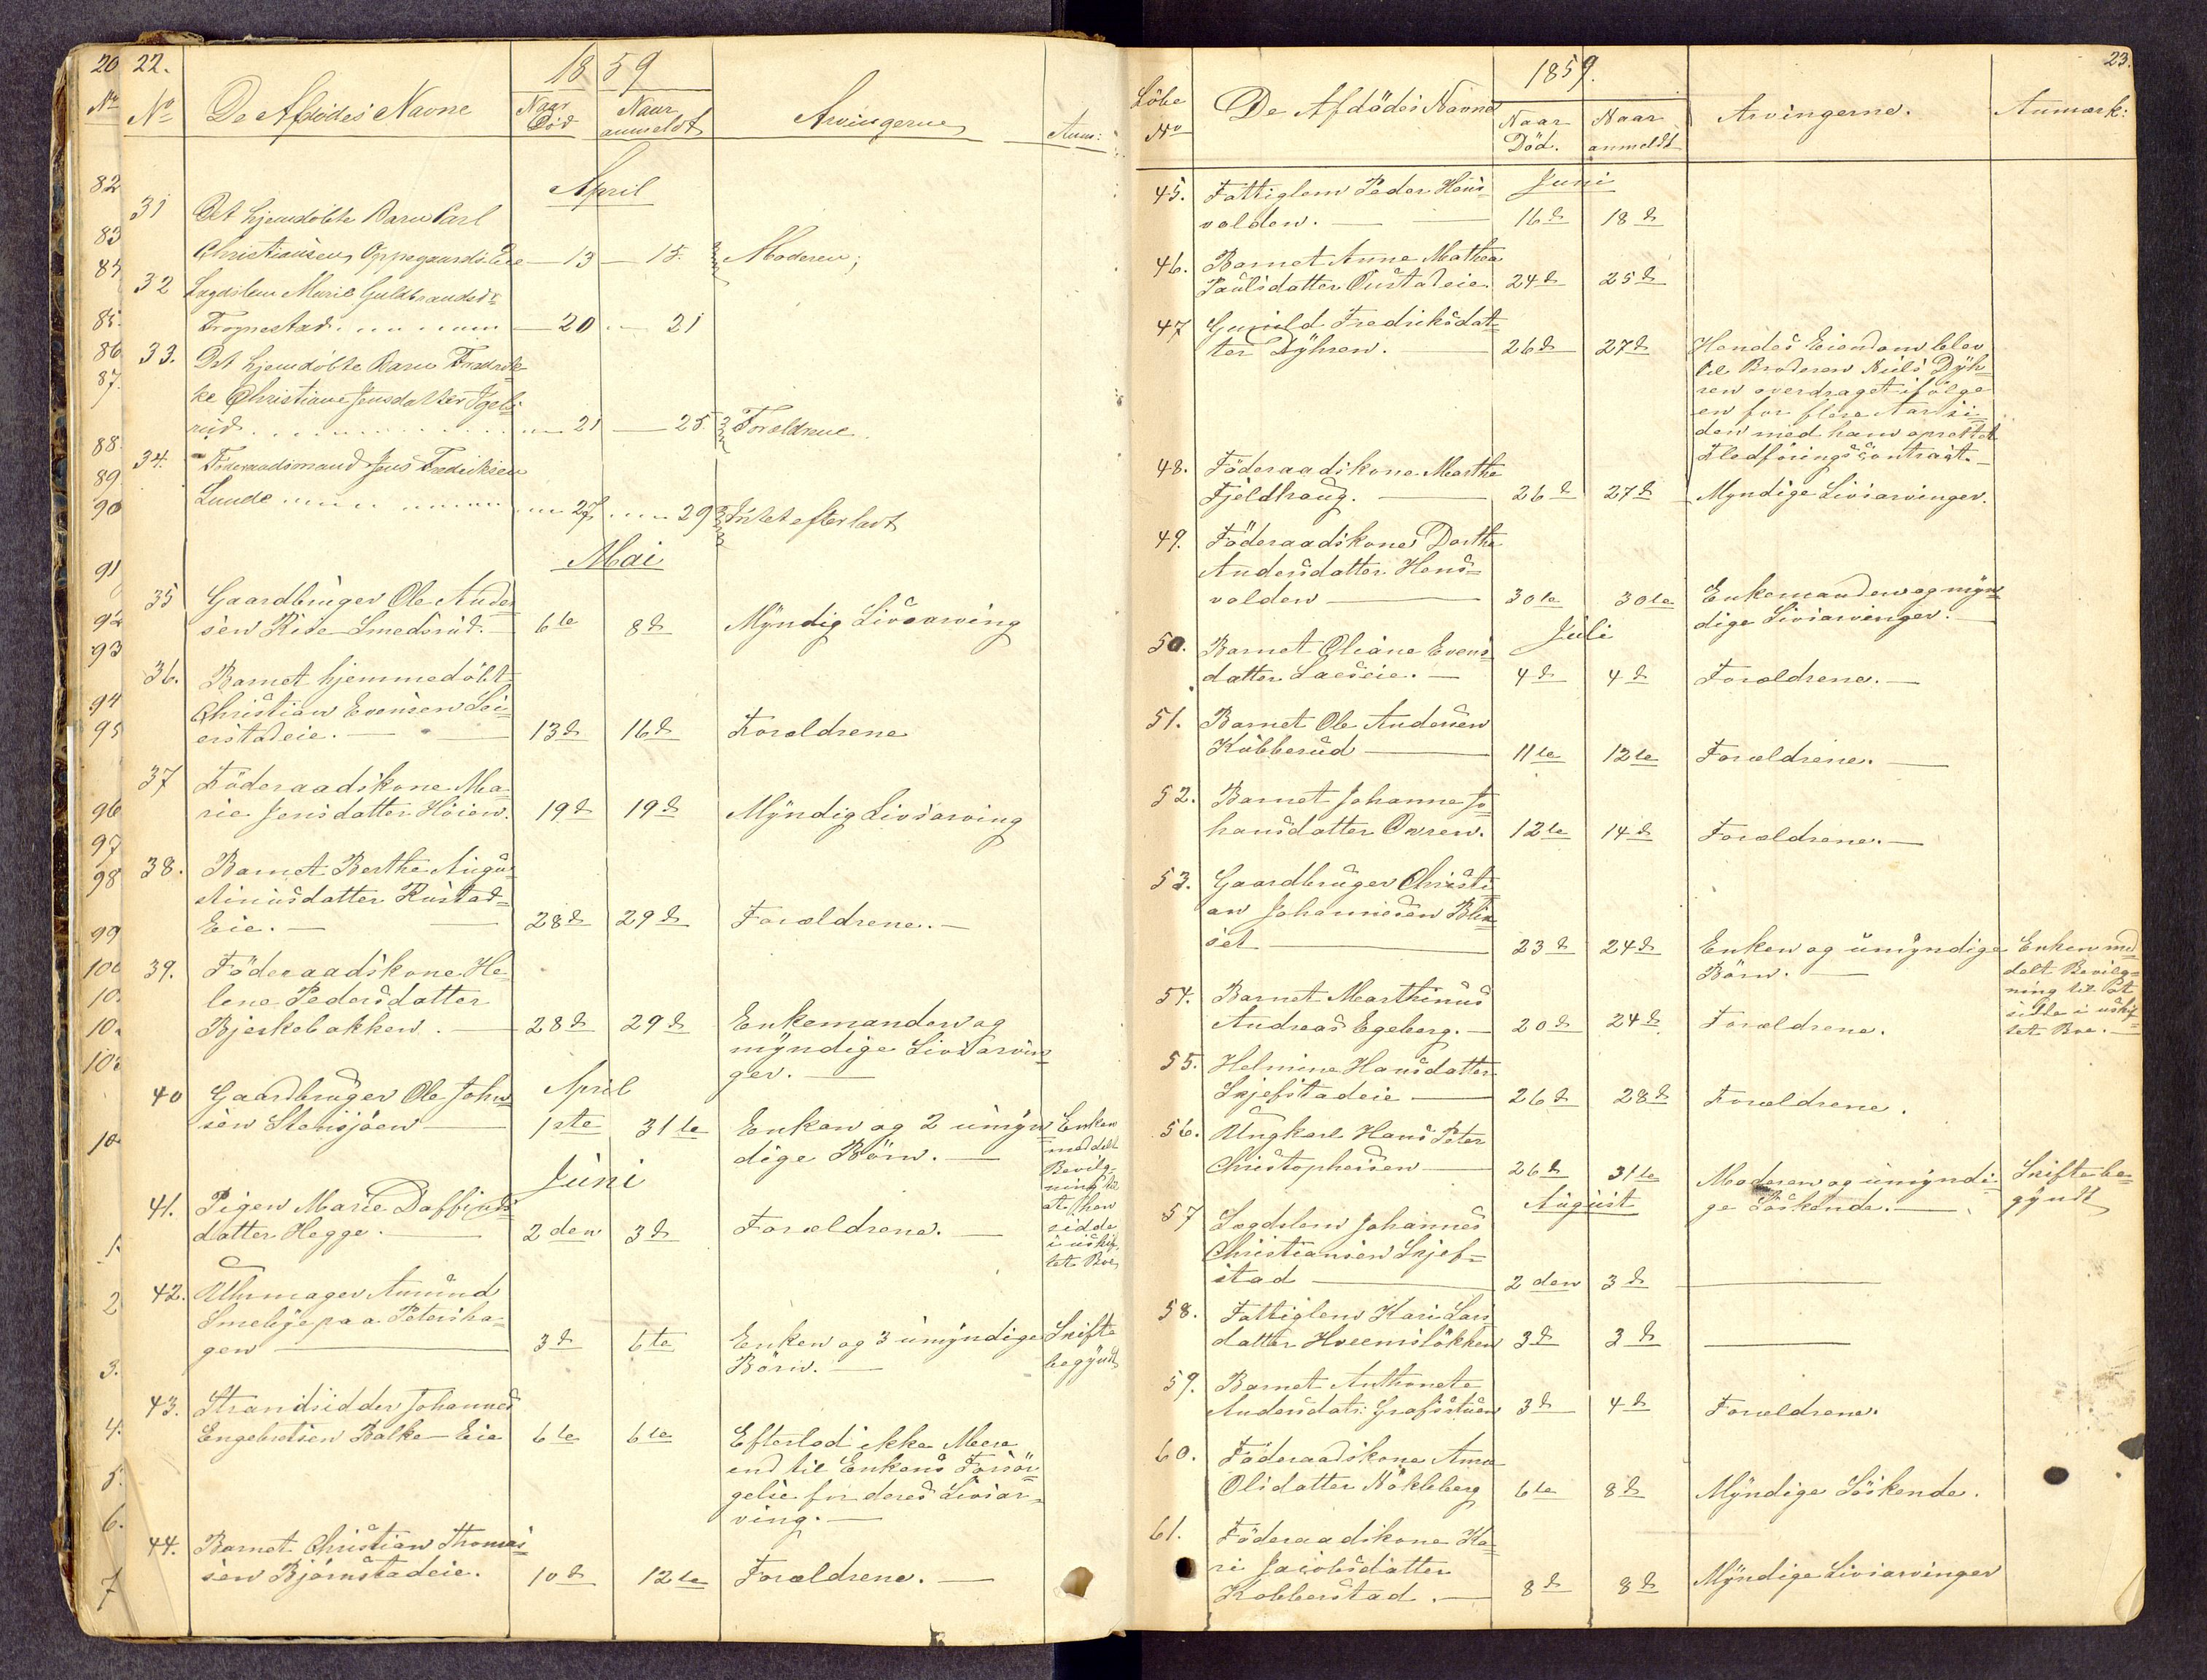 20 22.
1859
No No De Afdödes Navne Naar Död Naar anmeldt Arvingerne Anm:
82
April
31 Det hjemdöbte Barn Carl
83
Christiansen, Oppegaards Eie — 13 — 15. Moderen;
32 Lægdslem Marie Guldbrandsdr
85.
Frognestad — 20 — 21
86
33. Det hjemdöbte Barn Fredrik-
87.
ke Christiane Jensdatter Igels-
rud — 21 — 25. Forældrene.
88.
34. Föderaadsmand Jens Fredriksen
89.
Lunde — 27 — 29 Intet efterladt
90
Mai
91
35 Gaardbruger Ole Ander-
92
sen Rise Smedsrud. — 6te 8d Myndig Livsarving
93
36. Barnet hjemmedöbt
94
Christian Evensen Lei-
95
erstadeie. — 13d 16d Forældrene
37 Föderaadskone Ma-
96
rie Jensdatter Höien. 19d 19d Myndig Livsarving
97
98
38. Barnet Berthe Augu-
stinusdatter Rustad-
99
Eie. — 28d 29d Forældrene. —
100
39. Föderaadskone He-
10.
lene Pedersdatter
10.
Bjerkebakken. — 28d 29d Enkemanden og
myndige Livsarvin-
10.
ger. —
April
40 Gaardbruger Ole John-
sen Stensjöen — 1ste 31te Enken og 2 umyn- Enken
10
dige Börn. — meddelt
Bevilg-
ning til
at hen
sidde
i uskif-
tet Boe,
Juni
41. Pigen Marie Daffinds-
1.
datter Hegge. — 2den 3d Forældrene. —
2
42. Uhrmager Amund
Smebye paa Petersha-
gen — 3d 6te Enken og 3 umyndige Skifte
3.
Börn. — begyndt
43. Strandsidder Johannes
4.
Engebretsen Balke-Eie 6te 6te Efterlod ikke Mere
end til Enkens Forsör-
5.
gelse for deres Livsar-
6.
ving. —
44. Barnet Christian Thomas-
7
sen Bjørnstadeie. 10d 12te Forældrene. —
1859. 23.
Löbe No De Afdödes Navne Naar Död. Naar anmeldt Arvingerne. Anmærk:
Juni
45. Fattiglem Peder Hens-
volden. — 16d 18d
46. Barnet Anne Mathea
Paulsdatter Rustadeie. 24d 25d
47 Gunild Fredriksdat-
ter Dyhren. — 26d 27d Hendes Eiendom blev
til Broderen Niels Dyh-
ren overdraget ifölge
en for flere Aar si-
den med ham oprettet
Fledföringscontract. —
48. Föderaadskone Marthe
Fjeldhaug. — 26d 27d Myndige Livsarvinger.
49. Föderaadskone Dorthe
Andersdatter Hens-
volden — 30te 30te Enkemanden og myn-
dige Livsarvinger. —
Juli
50. Barnet Oliane Evens-
datter Laeseie. — 4d 4d Forældrene. —
51. Barnet Ole Andersen
Kubberud — 11te 12te Forældrene. —
52. Barnet Johanne Jo-
hansdatter Ovren. 12te 14d Forældrene. —
53. Gaardbruger Christi-
an Johannesen Blix-
set — 23d 24d Enken og umyndige Enken med-
Börn. — delt Bevilg-
ning til at
sidde i uskif-
tet Boe. —
54. Barnet Marthinus
Andreas Egeberg. — 20d 24d Forældrene.
55. Helmine Hansdatter
Skjefstadeie — 26d 28d Forældrene.
56. Ungkarl Hans Peter
Christophersen — 26d 31te Moderen og umyndi- Skifte be-
ge Söskende. — gyndt
August
57 Lægdslem Johannes
Christiansen Skjef-
stad — 2den 3d —
58. Fattiglem Kari Lars-
datter Hveemslökken 3d 3d —
59. Barnet Anthonete
Andersdatr: Grafsstuen 3d 4d Forældrene.
60. Föderaadskone Anne
Olsdatter Nökleberg 6te 8d Myndige Söskende.
61. Föderaadskone Ka-
ri Jacobsdatter
Kobberstad. — 8d 8d Myndige Livsarvinger